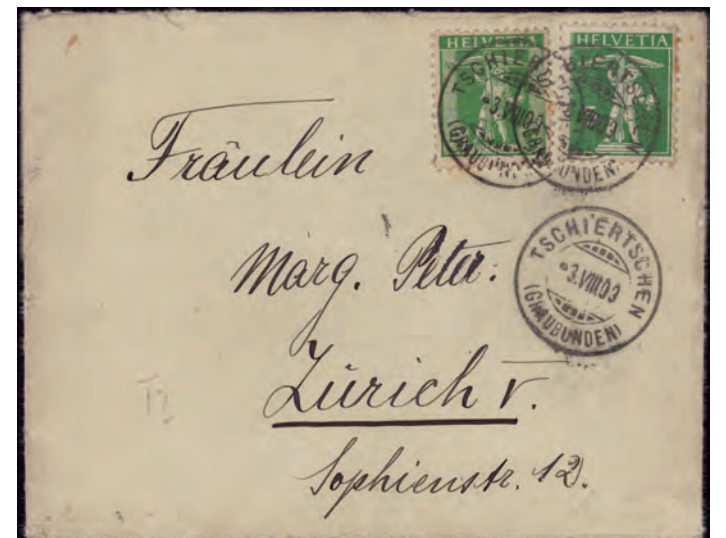 HELVETIA HELVETIA
TSCHIERTSCHEN
(GRAUBÜNDEN)
Fräulein
Marg. Peter.
TSCHIERTSCHEN
(GRAUBÜNDEN)
Zürich V.
Sophienstr. 12.